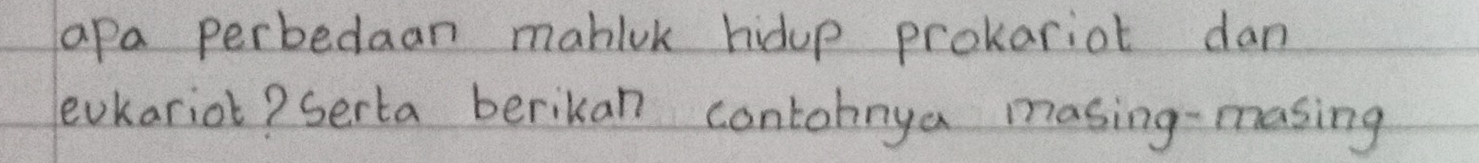 apa perbedaan mahluk hidup prokariot dan
eukariot? Serta berikan contohnya masing-masing